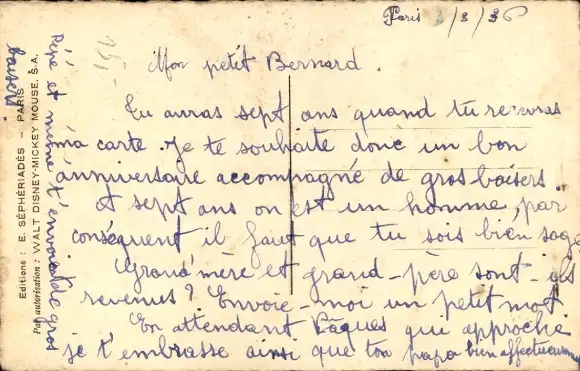 Paris 3/3/36
Mon petit Bernard.
Tu auras sept ans quand tu recevras
ma carte. Je te souhaite donc un bon
anniversaire accompagné de gros baisers
A sept ans on est un homme, par
conséquent il faut que tu sois bien sage
Grand'mère et grand-père sont-ils
revenus? Envoie-moi un petit mot
En attendant Pâques qui approche
je t'embrasse ainsi que ton papa bien affectueusement
Pépé et mémé t'envoient de gros
baisers.
Editions : E. SÉPHÉRIADÈS -- PARIS
Par autorisation : WALT DISNEY-MICKEY MOUSE, S.A.